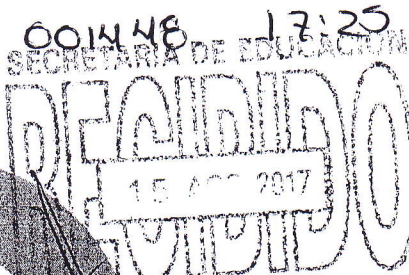 001448 17:25
SECRETARIA DE EDUCACION
RECIBIDO
15 AGO 2017